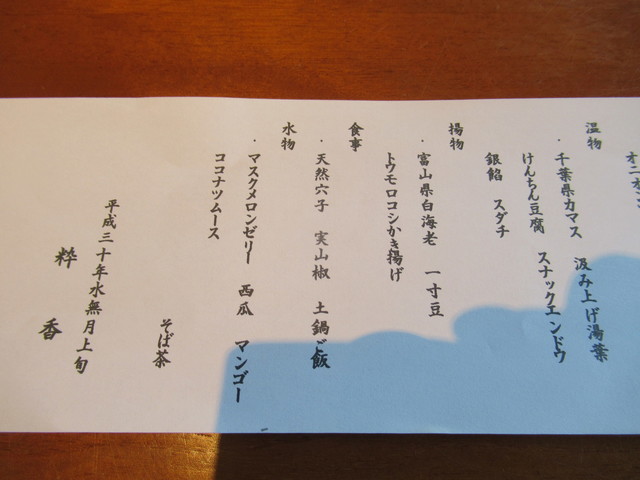 温物
・千葉県カマス　汲み上げ湯葉
けんちん豆腐　スナックエンドウ
銀餡　スダチ
揚物
・富山県白海老　一寸豆
トウモロコシかき揚げ
食事
・天然穴子　実山椒　土鍋ご飯
水物
・マスクメロンゼリー　西瓜　マンゴー
ココナツムース
そば茶
平成三十年水無月上旬
粋香